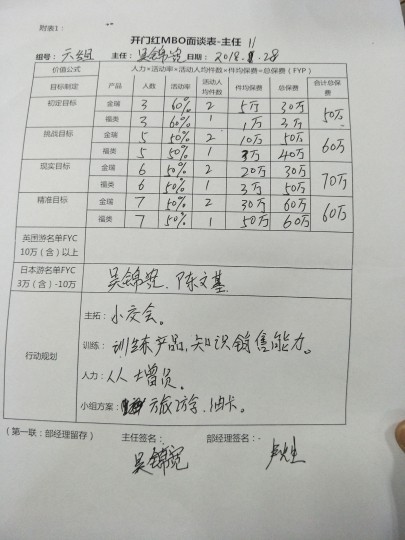 附表1：
开门红MBO面谈表-主任
组号：天组 主任：吴锦 日期：2018.11.28
价值公式 人力×活动率×活动人均件数×件均保费=总保费（FYP）
目标制定 产品 人数 活动率 活动人均件数 件均保费 总保费 合计总保费
初定目标 金瑞 3 60% 2 5万 30万 50万
福类 3 60% 1 1万 3万
挑战目标 金瑞 5 50% 2 10万 50万 60万
福类 5 50% 1 3万 40万
现实目标 金瑞 6 50% 2 20万 30万 70万
福类 6 50% 1 3万 50万
精准目标 金瑞 7 50% 2 30万 60万 60万
福类 7 50% 1 50万 60万
英国游名单FYC
10万（含）以上
日本游名单FYC
3万（含）-10万 吴锦 陈文基
行动规划
主拓：小交会。
训练：训练产品，知识销售能力。
人力：人人增员。
小组方案：旅访含、油卡。
（第一联：部经理留存） 主任签名： 部经理签名：
吴锦